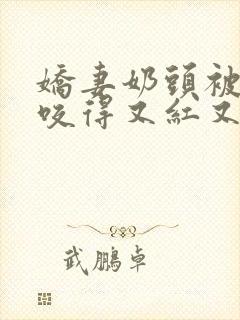 嬌妻奶頭被
咬得又紅又
武鵬卓